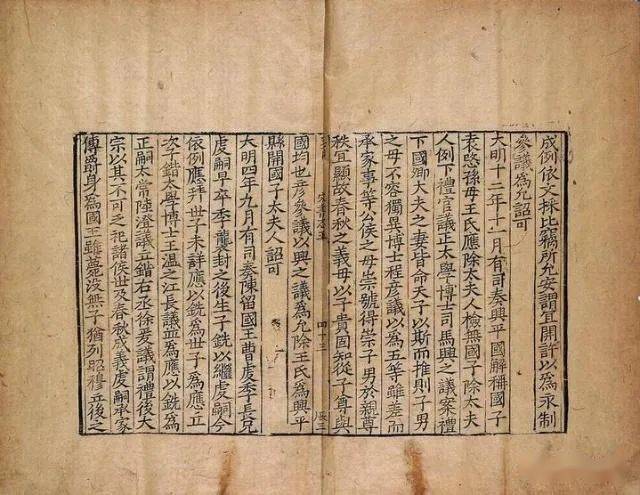 成例依文採比竊所允安謂宜開許以爲永制
參議爲允詔可
大明十二年十一月有司奏興平國解稱國子
袁愍孫母王氏應除太夫人檢無國子除太夫
人例下禮官議正太學博士司馬興之議案禮
下國卿大夫之妻皆命天子以斯而推則子男
之母不容獨異博士程彥議以爲五等雖差而
承家事等公侯之母崇號得崇子男於親尊
秩宜顯故春秋之義母以子貴固知從子尊與
四十三
國均也彥參議以興之議爲允除王氏爲興平
縣開國子太夫人詔可
大明四年九月有司奏陳留國王曹虔季長兄
虔嗣早卒季襲封之後生子銑以繼虔嗣今
依例應拜世子未詳應以銑爲世子爲應立
次子鍇太學博士王溫之江長議並爲應以銑爲
正嗣太常陸澄議立鍇右丞徐爰議謂禮後大
宗以其不可乏祀諸侯世及春秋成義虔嗣承家
傳爵身爲國王雖薨沒無子猶列昭穆立後之